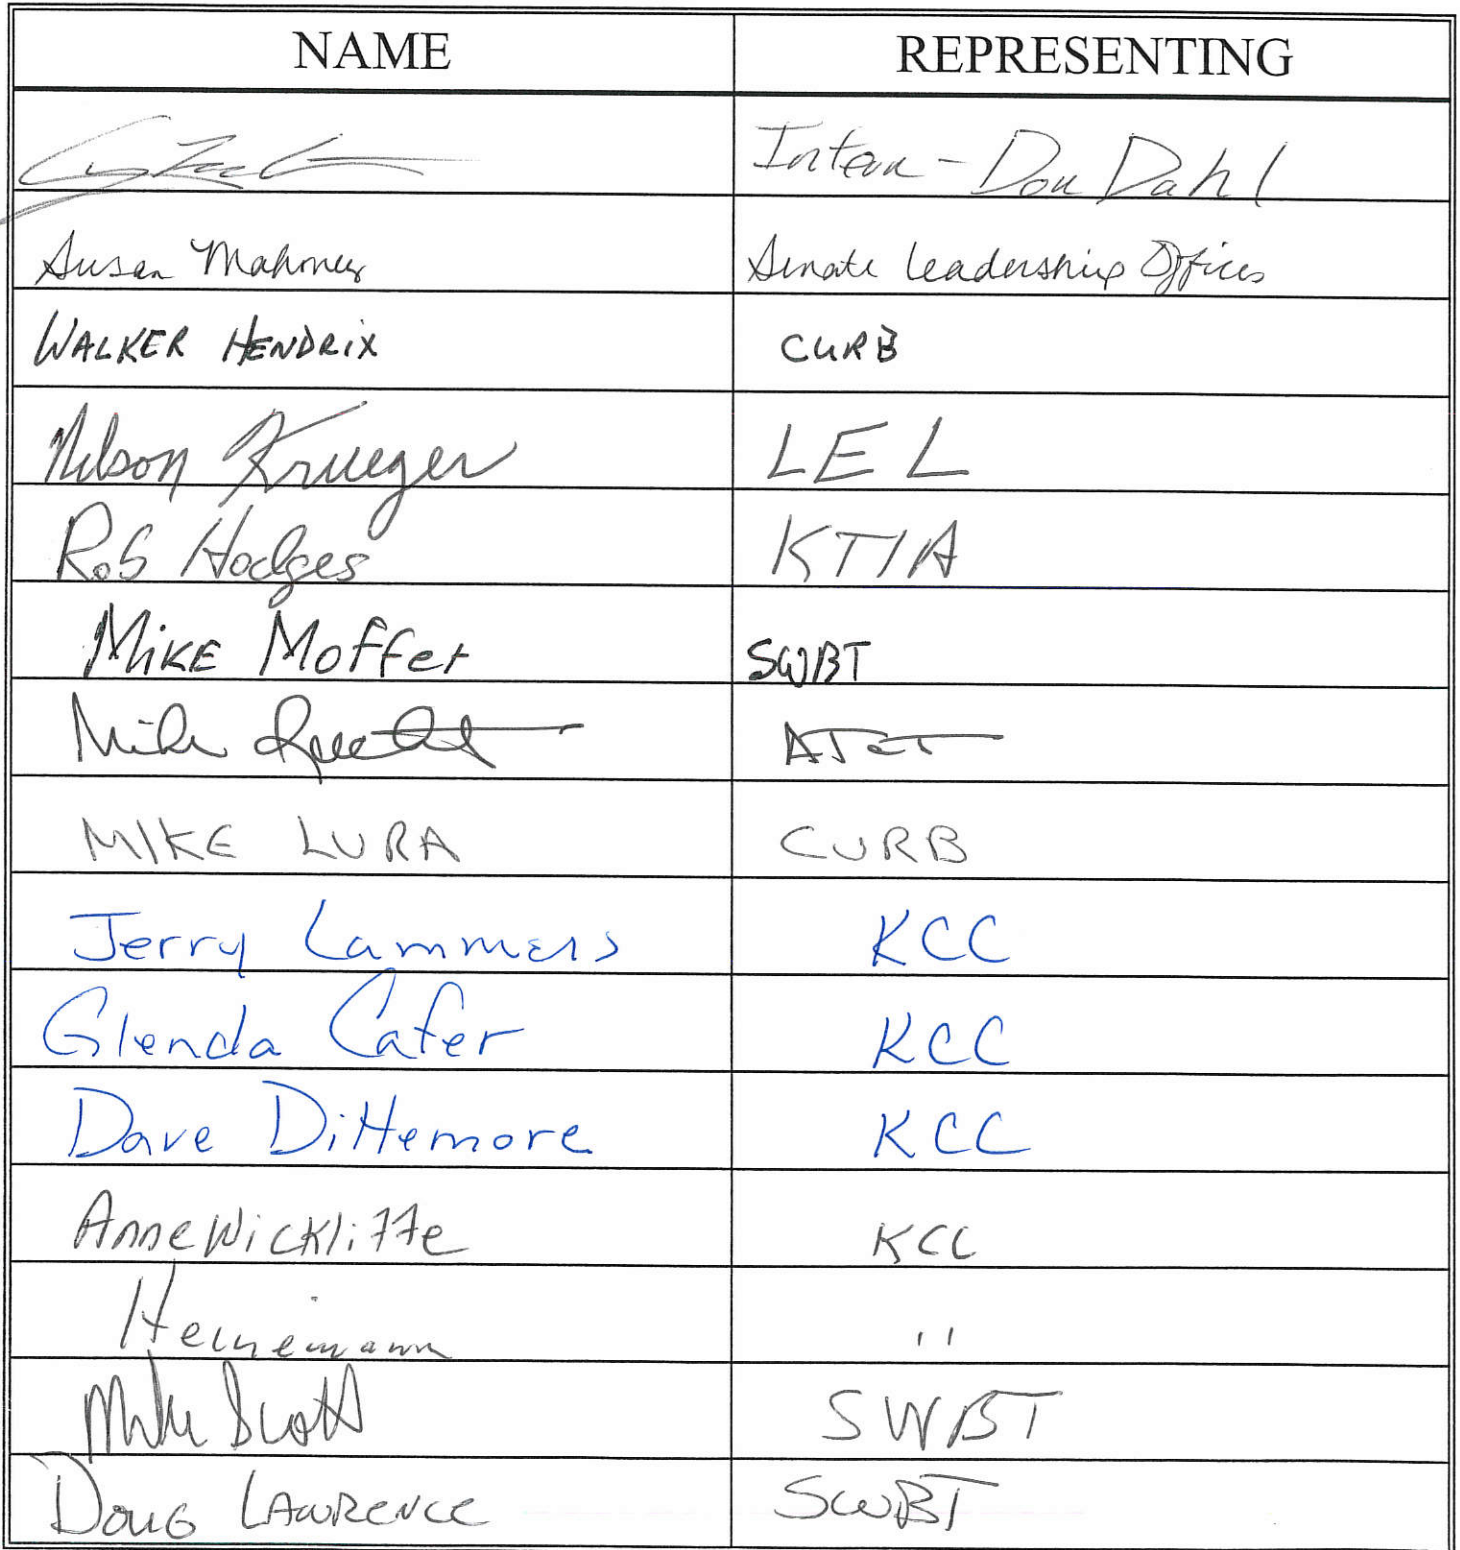 NAME REPRESENTING
Intern - Don Dahl
Susan Mahoney Senate Leadership Offices
WALKER HENDRIX CURB
Nelson Krueger LEL
Rob Hodges KTIA
MIKE Moffet SWBT
Mike AT&T
MIKE LURA CURB
Jerry Lammers KCC
Glenda Cafer KCC
Dave Dittemore KCC
Anne Wickliffe KCC
Heinemann "
Mike Scott SWBT
DOUG LAWRENCE SWBT